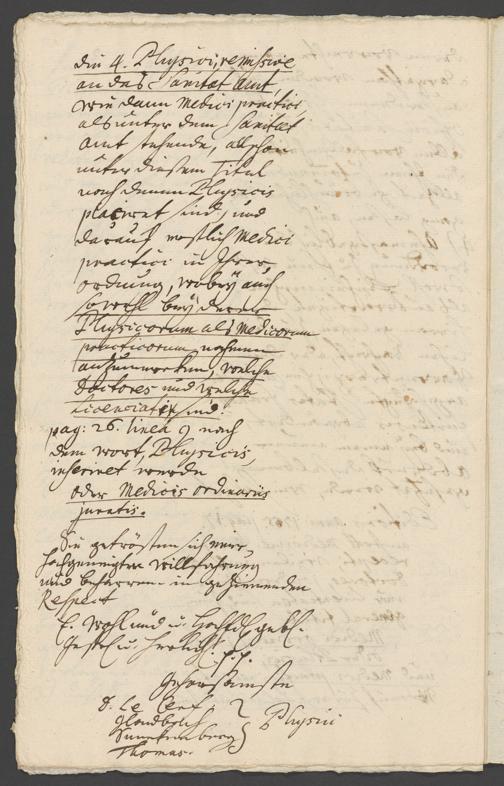 die 4. Physici, remissive
an das Sanitæt Amt,
wie dann Medici practici
als unter dem Sanitæt
Amt stehende, allschon
unter diesem Titul
nach denen Physicis
placiret sind, und
darauf erstlich Medici
practici in Ihrer
ordnung, wobey auch
sowohl bey derer
Physicorum als Medicorum
practicorum nahmen
anzumercken, welche
Doctores und welche
Licenciati sind.
pag: 26. linea 9 nach
dem wort, Physicis,
inseriret werde
oder Medicis ordinariis
juratis.
Sie getrösten sich einer
hochgeneigten Willfahrung
und beharren in geziemenden
Respect
E. Wohl und u. Hochedelgebl.
Gestr. u. Herrlich.
gehorsamste
D. Le Cerf
Grambs
Senckenberg } Physici
Thomas.